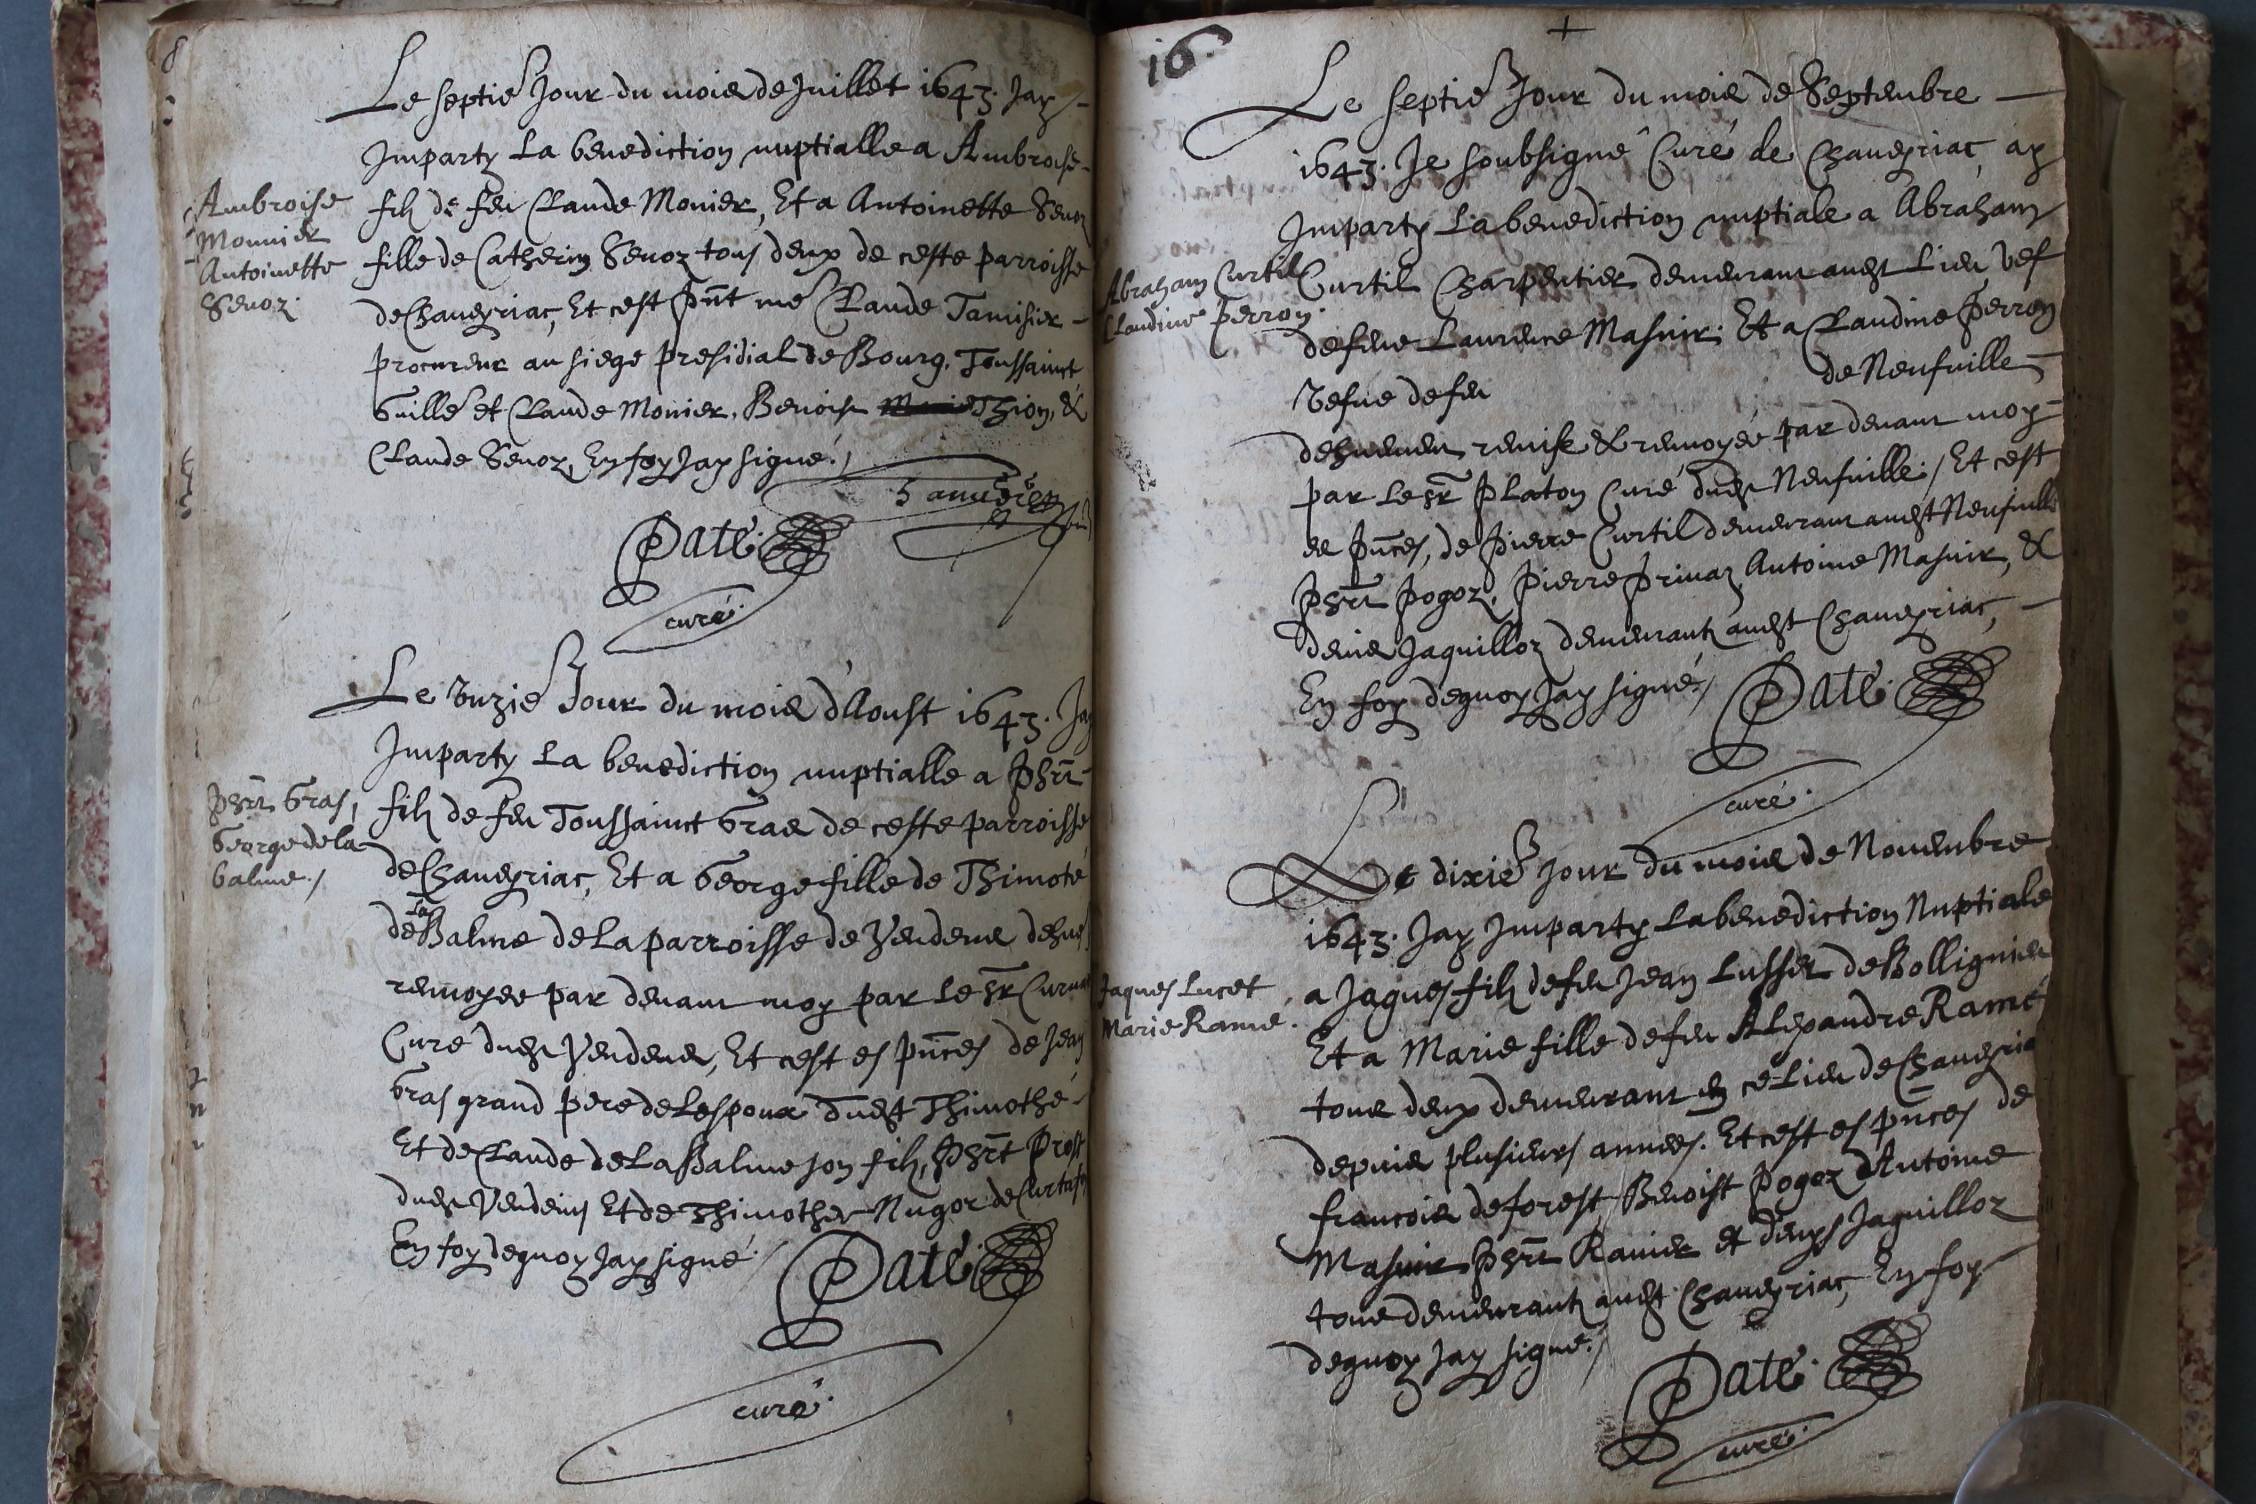 Le septie Jour du mois de Juillet 1643. Jay
Imparty La benediction nuptialle a Ambroise
filz de feu Claude Monier, Et a Antoinette Sevoz
fille de Catherin Sevoz tous deux de ceste parroisse
de Chaveyriac, Et cest pnt me Claude Tamisier
procureur au siege presidial de Bourg, Toussainct
Guille et Claude Monier, Benoist Thion, &
Claude Sevoz, En foy Jay signé./
Ambroise
Monnier
Antoinette
Sevoz.
Paté
curé
Le unzie Jour du mois d'Aoust 1643. Jay
Imparty La benediction nuptialle a Phrt
filz de feu Toussainct Gras de ceste parroisse
de Chaveyriac, Et a George fille de Thimoté
de la Balme de La parroisse de Vendens
renvoyee par devant moy par Le Sr
Curé dudt Vendens, Et cest es pnces de Jean
Gras grand pere de Lespoux dudt Thimothé
Et de Claude de La Balme son filz, Phrt Prost
dudt Vendeins Et de Thimothee Nugoz de
En foy dequoy Jay signé./
Phrt Gras,
George de la
balme./
Paté
curé.
16.
Le septie Jour du mois de Septembre
1643. Je soubsigné Curé de Chaveyriac ay
Imparty La benediction nuptiale a Abraham
Curtil Charpentier demeurant audt Lieu vef
de feue Laurence Masuir; Et a Claudine Perron
de Neufville
Vefve de feu
dehuement remise & renvoyée par devant moy
par Le Sr Platon Curé dudt Neufville./ Et cest
es pnces, de Pierre Curtil demeurant audt Neufville
Phrt Pogoz, Pierre Privaz, Antoine Masuir, &
Denis Jaquilloz demeurantz audt Chaveyriac,
En foy dequoy Jay signé./
Abraham Curtil
Claudine Perron.
Paté
curé.
Le dixie Jour du mois de Novembre
1643. Jay Imparty La benediction Nuptiale
a Jaques filz de feu Jean Lusset de Bollignieu
Et a Marie fille de feu Alexandre Ramé
tous deux demeurant en ce Lieu de Chaveyria
depuis plusieurs années. Et cest es pnces de
francois deforest, Benoist Pogoz d'Antoine
Masuir Phrt Ranier et denys Jaquilloz
tous demeurantz audt Chaveyriac, En foy
dequoy Jay signé./
Jaques Lucet
Marie Ramé.
Paté
curé.